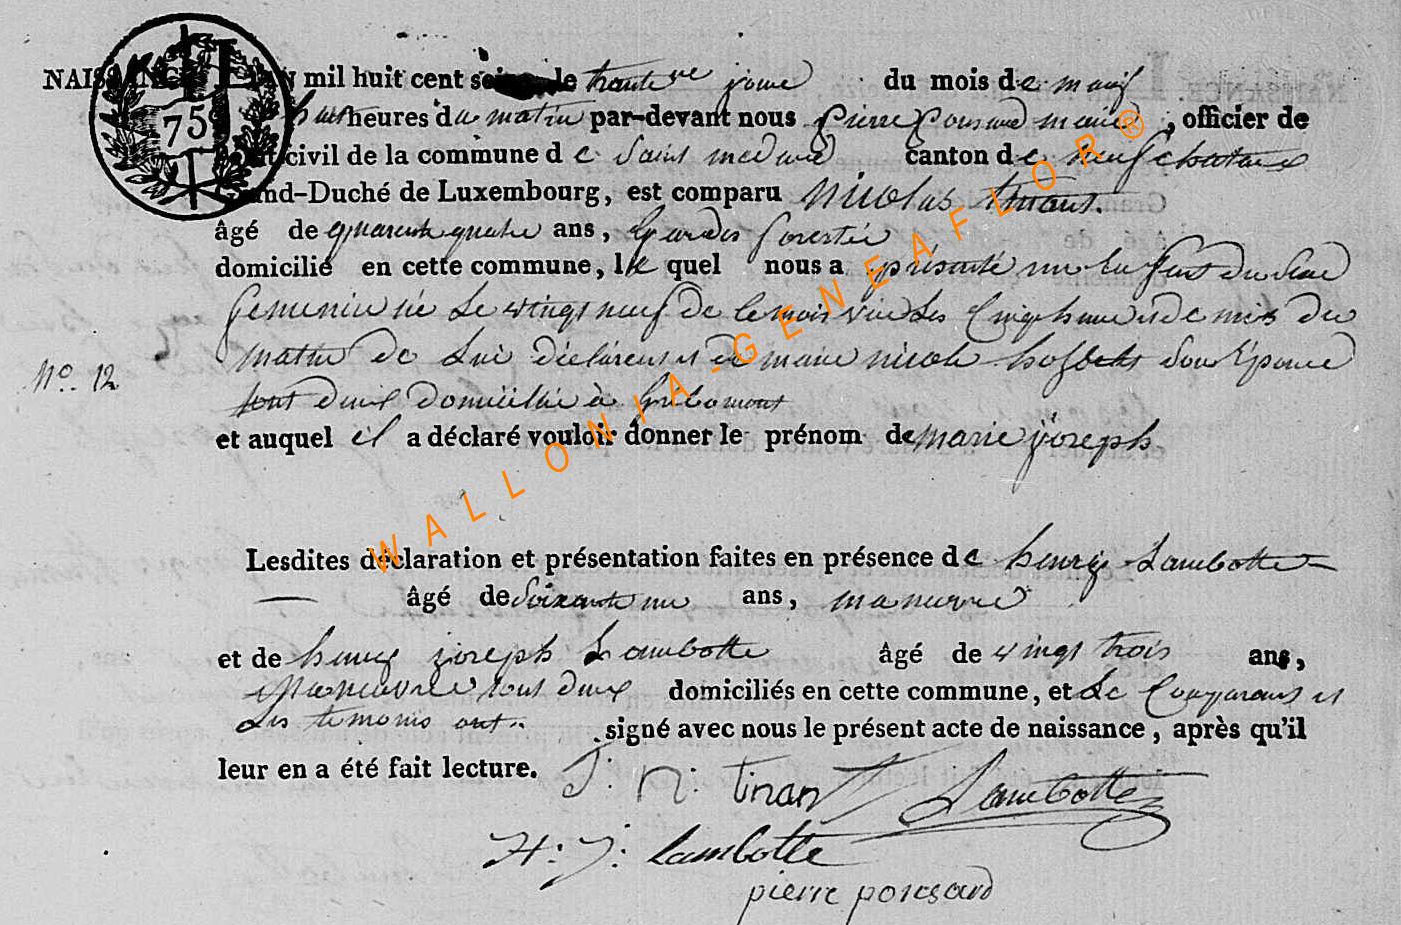 NAISSANCE. L'AN mil huit cent seize le trente me jour du mois de mai
huit heures du matin par-devant nous pierre Ponsard maire, officier de
l'état civil de la commune de Saint medard canton de neufchateau
Grand-Duché de Luxembourg, est comparu Nicolas tinant.
âgé de quarente quatre ans, Gardes forestie
domicilié en cette commune, le quel nous a présenté un Enfant du Sexe
femenin né Le vingt neuf de le mois les Cinq heures demis du
matin de Lui déclarent et de marie nicole son Epouse
tout deux domicilié à Gribomont
et auquel il a déclaré vouloir donner le prénom de marie joseph
No. 12
Lesdites déclaration et présentation faites en présence de henry Lambotte
âgé de Soixante un ans, manuvre
et de henry joseph Lambotte âgé de vingt trois ans,
Manouvre tout deux domiciliés en cette commune, et Le Comparant et
Les temoins ont signé avec nous le présent acte de naissance, après qu'il
leur en a été fait lecture.
J: N: tinant Lambotte
H: J: Lambotte
pierre ponsard
75
WALLONIA-GENEAFLOR®